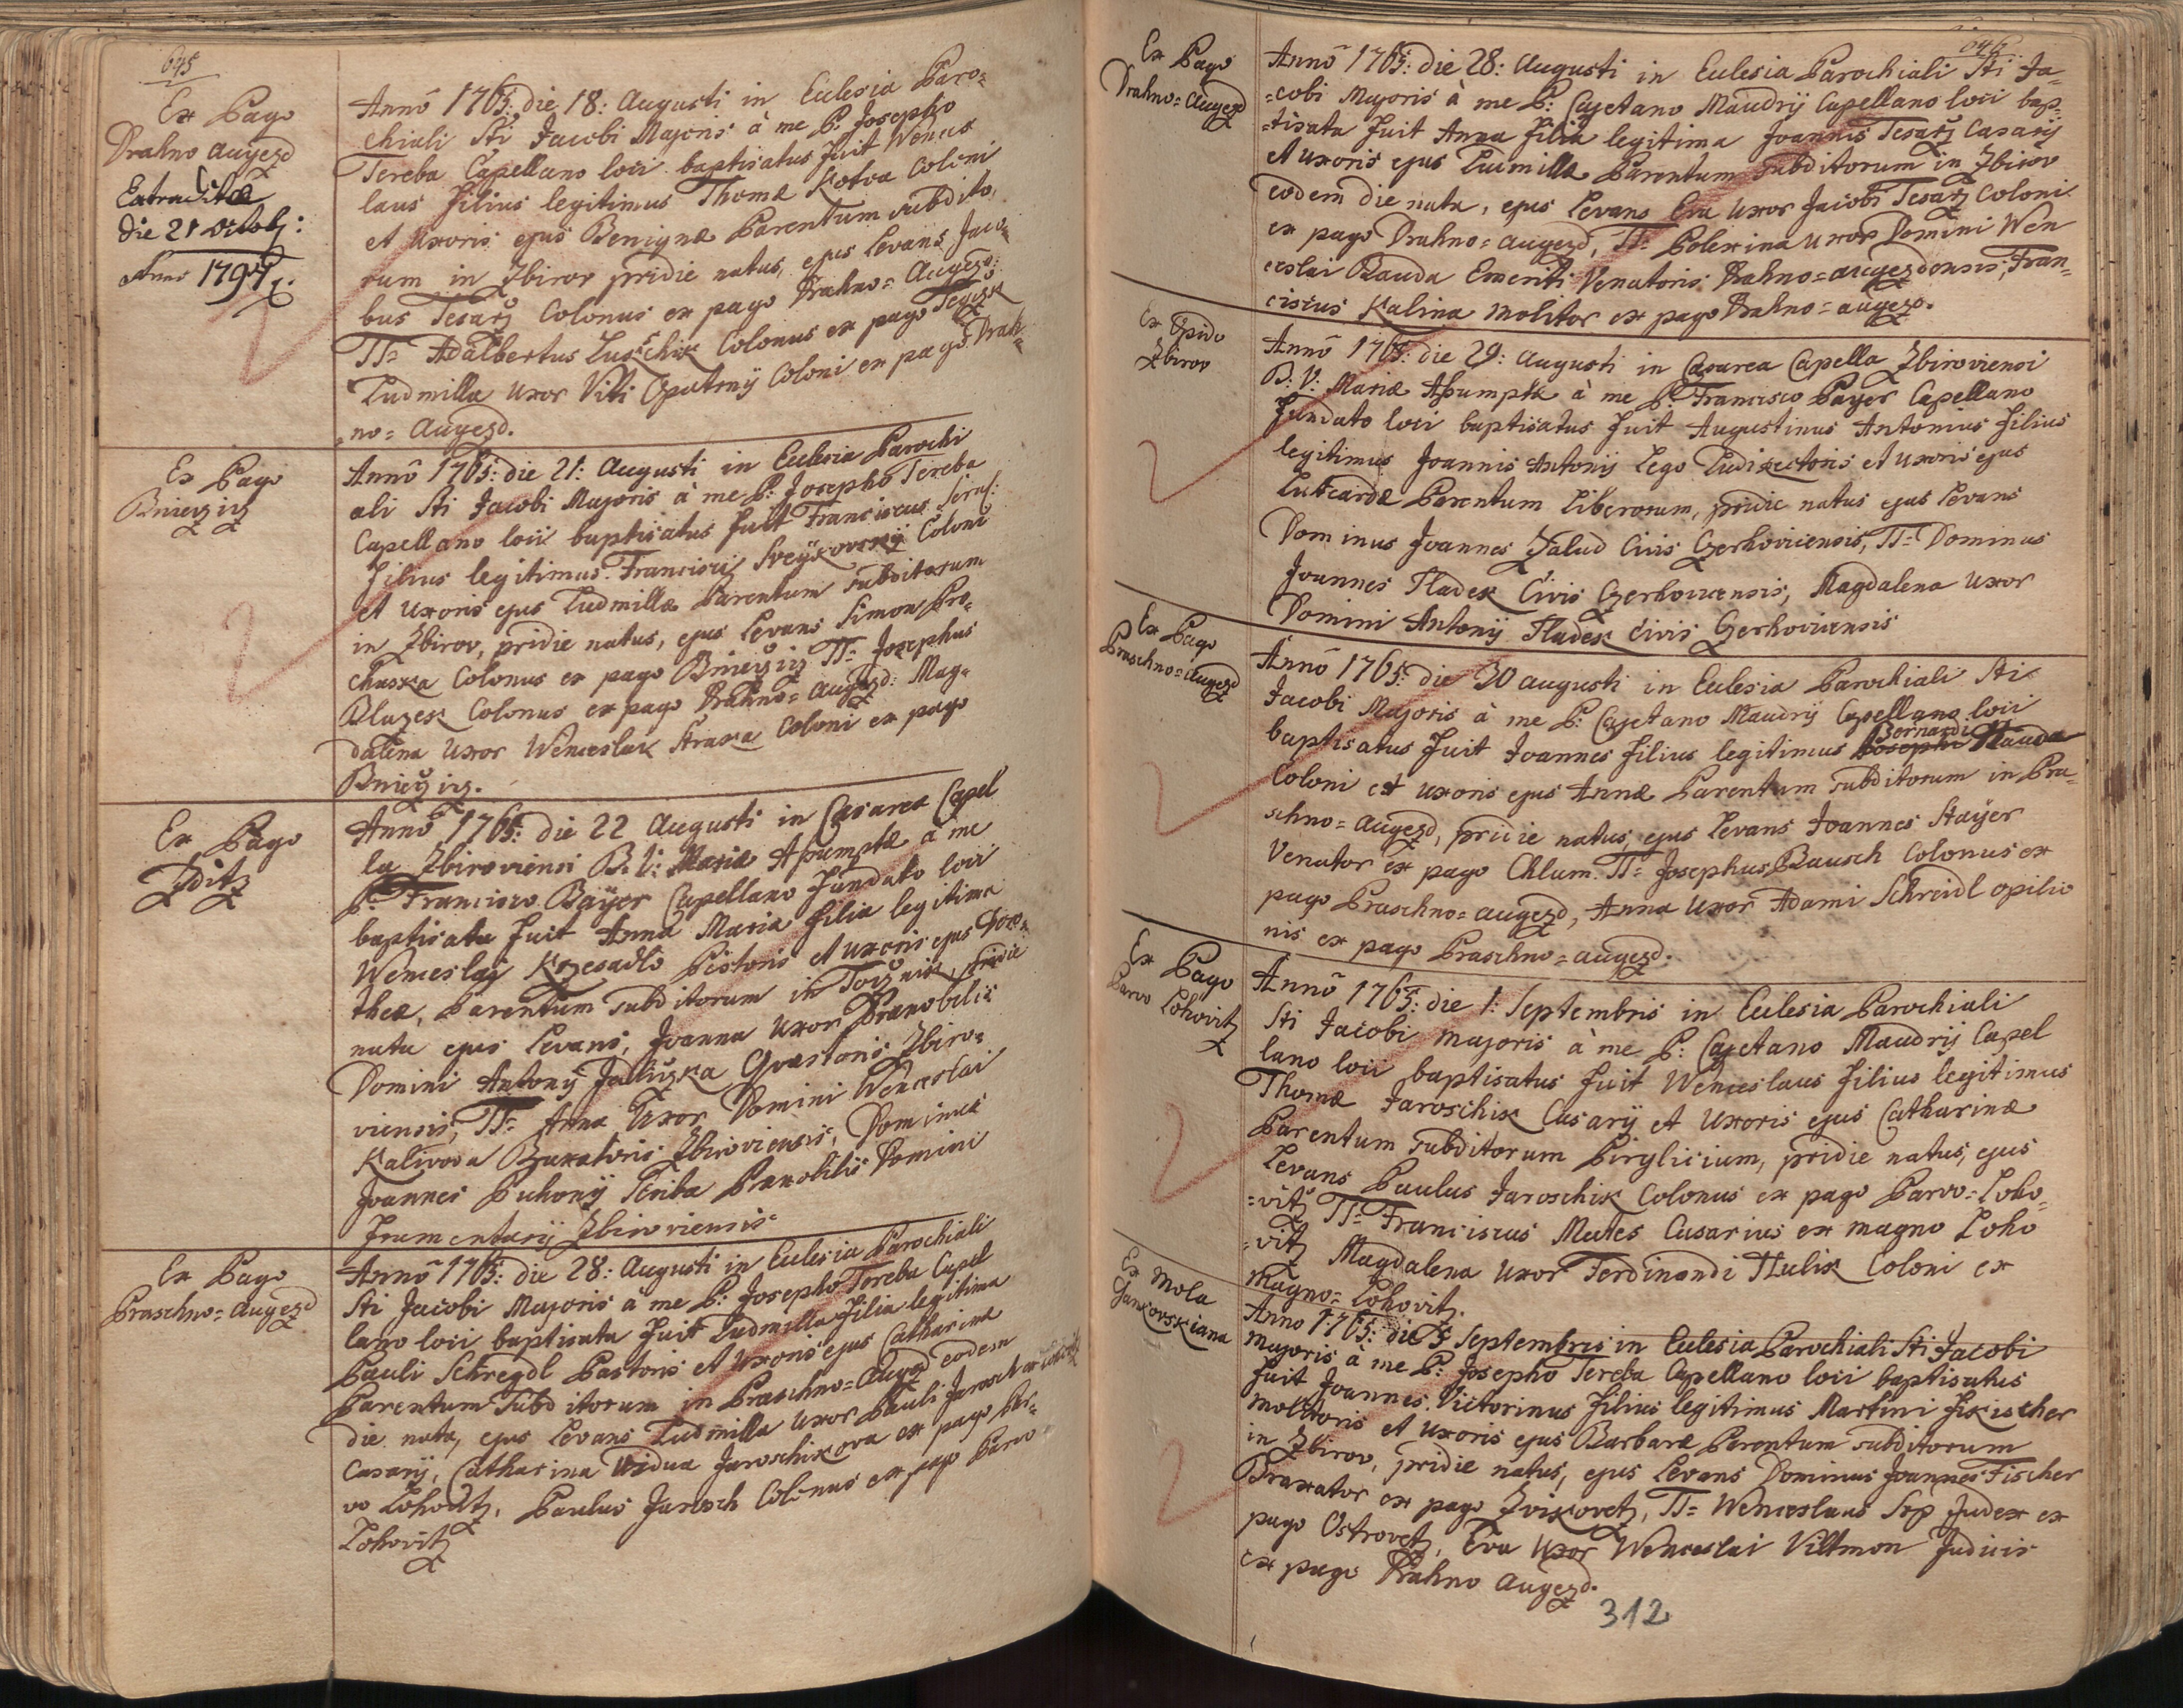 645
Ex Pago
Drahno augezd
Extraditæ
die 21 octobr:
Anno 1797.
Anno 1765: die 18: Augusti in Eclesia Paro=
chiali Sti Jacobi Majoris à me P: Josepho
Tereba Capellano loci baptisatus fuit Wences
laus filius legitimus Thomæ Kotva Coloni
et Uxoris ejus Benignæ Parentum subdito
rum in Zbirov pridie natus, ejus Levans Jaco=
bus Tesarz Colonus ex pago Drahno= Augezd:
TT= Adalbertus Luschik Colonus ex pago
Ludmilla Uxor Viti Opatrny Coloni ex pago Drah=
=no= Augezd.
Ex Pago
Brzieziz
Anno 1765: die 21: Augusti in Eclesia Parochi
ali Sti Jacobi Majoris à me P: Josepho Tereba
Capellano loci baptisatus fuit Franciscus Seraf:
filius legitimus Francisci Sveykovsky Coloni
et Uxoris ejus Ludmillæ Parentum subditorum
in Zbirov, pridie natus, ejus Levans Simon Pro=
chaska Colonus ex pago Brzieziz TT= Josephus
Bluzek Colonus ex pago Drahno= augezd: Mag=
dalena Uxor Wenceslai Straka Coloni ex pago
Brzieziz.
Ex Pago
Zditz
Anno 1765: die 22 Augusti in Cæsarea Capel
la Zbiroviensi B: V: Mariæ Assumptæ à me
P: Francisco Bayer Capellano fundato loci
baptisata fuit Anna Maria filia legitima
Wenceslai Krzesadlo Pistoris et uxoris ejus Doro=
theæ, Parentum subditorum in Tocznik, pridie
nata ejus Levans, Joanna Uxor Prænobilis
Domini Antony Quæstoris Zbiro=
viensis, TT= Anna Uxor Domini Wenceslai
Kalivoda Braxatoris Zbiroviensis, Dominus
Joannes Puhony Scriba Prænobilis Domini
Frumentarij Zbiroviensis
Ex Pago
Praschno= augezd
Anno 1765: die 28: Augusti in Eclesia Parochiali
Sti Jacobi Majoris à me P: Josepho Tereba Capel
lano loci baptisata fuit Ludmilla filia legitima
Pauli Schreydl Pastoris et Uxoris ejus Catharinæ
Parentum Subditorum in Praschno= augezd eodem
die nata, ejus Levans Ludmilla Uxor Pauli Jarosch
Casarij, Catharina Vidua Jaroschikova ex pago Par=
vo Lohovitz, Paulus Jarosch Colonus ex pago Parvo
Lohovitz
646
Ex Pago
Drahno= augezd
Anno 1765: die 28: Augusti in Eclesia Parochiali Sti Ja=
=cobi Majoris à me P: Cajetano Maudry Capellano loci bap=
=tisata fuit Anna filia legitima Joannis Tesarz Casarij
et uxoris ejus Ludmillæ Parentum subditorum in Zbirov
eodem die nata, ejus Levans Eva Uxor Jacobi Tesarz Coloni
ex pago Drahno= augezd, TT= Polexina uxor Domini Wen
ceslai Bauda Emeriti Venatoris Drahno= augezdensis, Fran=
ciscus Kalina Molitor ex pago Drahno= augezd.
Ex Opido
Zbirov
Anno 1765: die 29: augusti in Cæsarea Capella Zbiroviensi
B: V: Mariæ Assumptæ à me P: Francisco Payer Capellano
fundato loci baptisatus fuit Augustinus Antonius filius
legitimus Joannis Antonij Lego Ludirectoris et uxoris ejus
Lutcardæ Parentum Liberorum, pridie natus ejus Levans
Dominus Joannes Zalud Civis Czerhoviciensis, TT= Dominus
Joannes Hladek Civis Czerhoviciensis, Magdalena uxor
Domini Antonij Hladek civis Czerhoviciensis
Ex Pago
Praschno= augezd
Anno 1765: die 30 augusti in Eclesia Parochiali Sti
Jacobi Majoris à me P: Cajetano Maudry Capellano loci
Bernardi
baptisatus fuit Joannes filius legitimus Josephi Hauda
Coloni et uxoris ejus Annæ Parentum subditorum in Pra=
schno= augezd, pridie natus, ejus Levans Joannes Stayer
Venator ex pago Chlum. TT= Josephus Bausch Colonus ex
pago Praschno= augezd, Anna Uxor Adami Schreidl opilio
nis ex pago Praschno= augezd.
Ex Pago
Parvo Lohovitz
Anno 1765: die 1: Septembris in Eclesia Parochiali
Sti Jacobi Majoris à me P: Cajetano Maudry Capel
lano loci baptisatus fuit Wenceslaus filius legitimus
Thomæ Jaroschik Casarij et Uxoris ejus Catharinæ
Parentum subditorum Pirglicium, pridie natus, ejus
Levans Paulus Jaroschik Colonus ex pago Parvo= Loho=
=vitz TT= Franciscus Mates Casarius ex magno Loho
=vitz Magdalena uxor Ferdinandi Hulik Coloni ex
magno= Lohovitz.
Ex Mola
Jankovskiana
Anno 1765: die 5 Septembris in Eclesia Parochiali Sti Jacobi
Majoris à me P: Josepho Tereba Capellano loci baptisatus
fuit Joannes Victorinus filius legitimus Martini Fischer
molitoris et uxoris ejus Barbaræ Parentum subditorum
in Zbirov, pridie natus, ejus Levans Dominus Joannes Fischer
Braxator ex pago Zvikovetz, TT= Wenceslaus Srp Judex ex
pago Ostrovetz, Eva Uxor Wenceslai Viltmon Judicis
ex pago Drahno augezd.
312